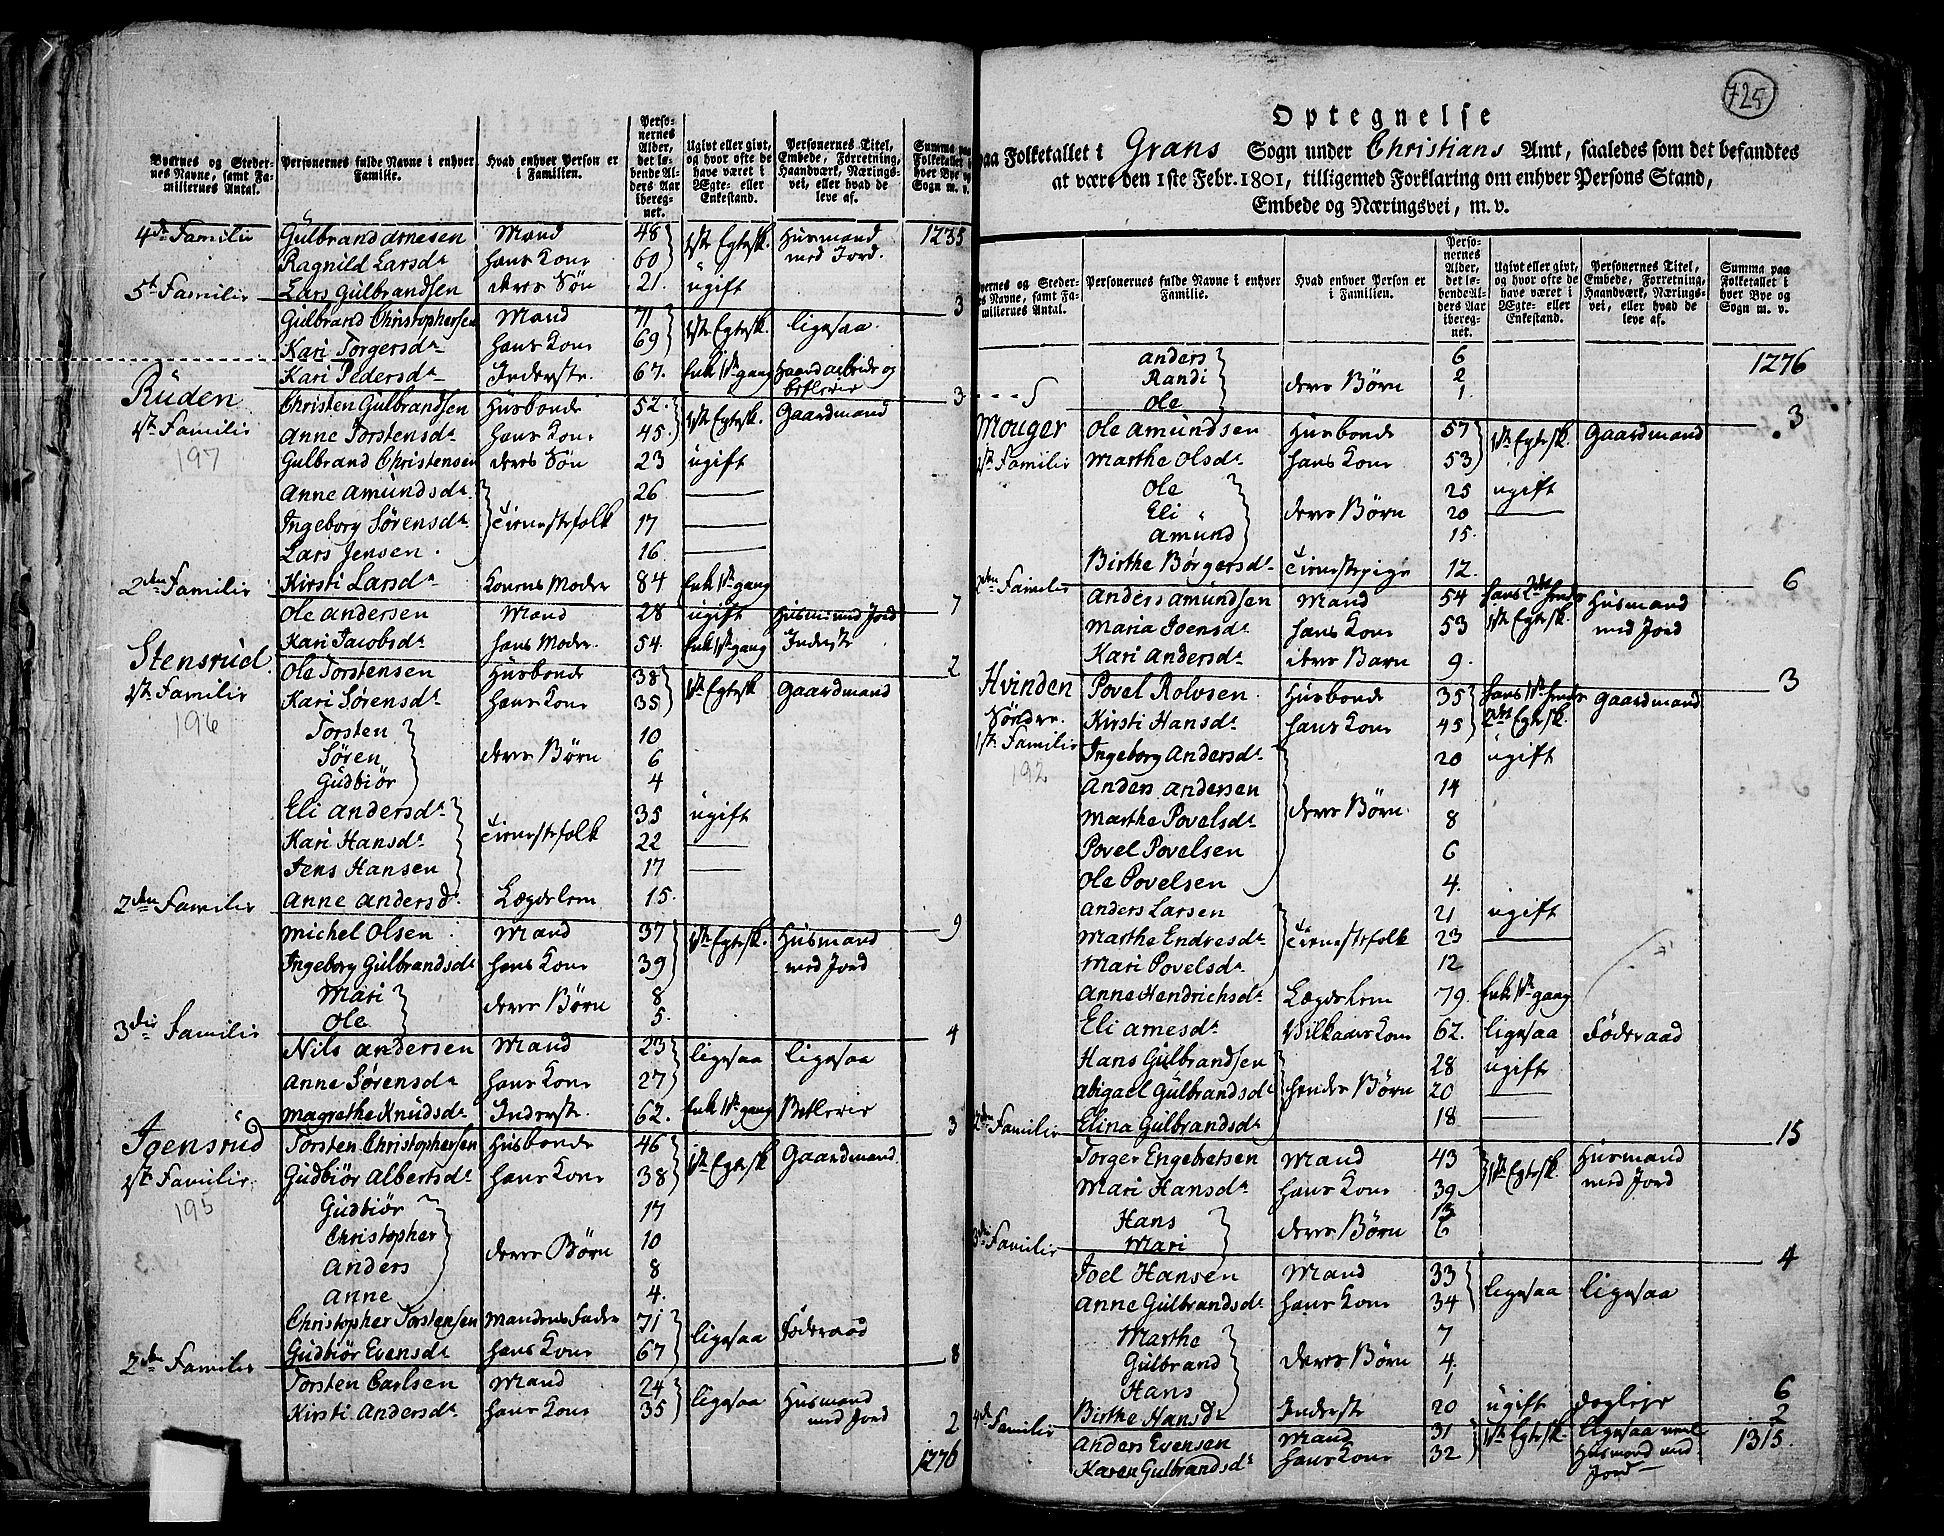 Byernes og Stedernes Navne, samt Familiernes Antal.
Personernes fulde Navne i enhver Familie.
Hvad enhver Person er i Familien.
Personernes Alder, det løbende Alders Aar iberegnet.
Ugivt eller givt, og hvor ofte de have været i Ægte- eller Enkestand.
Personernes Titel, Embede, Forretning, Haandværk, Næringsvei, eller hvad de leve af.
Summa paa Folketallet i hver Bye og Sogn m. v.
4de Familie Gülbrand Arnesen Mand 48 1ste Egtesk. Husmand med Jord. 1235
Ragnild Larsdr hans Kone 60
Lars Gülbrandsen deres Søn 21. ugift 3
5te Familie Gülbrand Christophersen Mand 71 1ste Egtesk. ligesaa
Kari Torgersdr hans Kone 69
Kari Pedersdr Inderste. 67. Enke 1ste gang Haandarbeide og betlerie 3
Rüden
1ste Familie
197
Christen Gülbrandsen Husbonde 52. 1ste Egtesk. Gaardmand
Anne Torstensdr hans Kone 45.
Gülbrand Christensen deres Søn 23 ugift
Anne Amündsdr 26 —
Ingeborg Sørensdr Tienestefolk 17 —
Lars Jensen 16 —
Kirsti Larsdr Konens Moder 84 Enke 1ste gang 7
2den Familie Ole Andersen Mand 28 ugift Husm: med Jord
Kari Jacobsdr hans Moder. 54. Enke 1ste gang Inderste 2
Stensrüd
1ste Familie
196
Ole Torstensen Husbonde 38 1ste Egtesk. Gaardmand
Kari Sørensdr hans Kone 35
Torsten 10
Søren deres Børn 6
Gudbiör 4
Eli Andersdr 35 ugift
Kari Hansdr Tienestefolk 22 —
Jens Hansen 17 —
Anne Andersdr Lægdslem 15. 9
2den Familie Michel Olsen Mand 37 1ste Egtesk. Husmand med Jord
Ingeborg Gülbrandsdr hans Kone 39
Mari deres Børn 8
Ole 5. 4
3die Familie Nils Andersen Mand 23 ligesaa ligesaa
Anne Sørensdr hans Kone 27
Magrethe Knüdsdr Inderste. 62. Enke 1ste gang Betlerie 3
Joensrüd
1ste Familie.
195
Torsten Christophersen Husbonde 46 1ste Egtesk Gaardmand
Gudbiör Albertsdr hans Kone 38
Gudbiör 17
Christopher deres Børn 10
Anders 8
Anne 4.
Christopher Torstensen Mandens Fader 71 ligesaa Föderaad
Gudbiör Evensdr hans Kone 67 8
2den Familie Torsten Carlsen Mand 24 ligesaa Husmand med Jord
Kirsti Andersdr hans Kone 35 2
1276
725
Optegnelse
paa Folketallet i Grans Sogn under Christians Amt, saaledes som det befandtes
at være den 1ste Febr. 1801, tilligemed Forklaring om enhver Persons Stand,
Embede og Næringsvei, m. v.
Byernes og Stedernes Navne, samt Familiernes Antal.
Personernes fulde Navne i enhver Familie.
Hvad enhver Person er i Familien.
Personernes Alder, det løbende Alders Aar iberegnet.
Ugivt eller givt, og hvor ofte de have været i Ægte- eller Enkestand.
Personernes Titel, Embede, Forretning, Haandværk, Næringsvei, eller hvad de leve af.
Summa paa Folketallet i hver Bye og Sogn m. v.
Anders 6 1276
Randi deres Børn 2
Ole 1. 3
Mouger
1ste Familie
Ole Amündsen Husbonde 57 1ste Egtesk. Gaardmand
Marthe Olsdr hans Kone 53
Ole 25 ugift
Eli deres Børn 20 —
Amünd 15.
Birthe Børgersdr Tienestepige 12. 6
2den Familie Anders Amündsen Mand 54 hans 2det hendes 1ste Egtesk. Husmand med Jord
Maria Joensdr hans Kone 53
Kari Andersdr deres Barn 9. 3
Hvinden
Søndre.
1ste Familie
192
Povel Rolvsen Husbonde 35 hans 1ste hendes 2det Egtesk. Gaardmand
Kirsti Hansdr hans Kone 45
Ingeborg Andersdr 20 ugift
Anders Andersen 14
Marthe Povelsdr deres Børn. 8
Povel Povelsen 6
Ole Povelsen 4.
Anders Larsen 21 ugift
Marthe Endresdr Tienestefolk 23 —
Mari Povelsdr 12
Anne Hendrichsdr Lægdslem 79. Enke 1ste gang
Eli Arnesdr Vilkaars Kone 62. ligesaa Föderaad
Hans Gülbrandsen 28 ugift
Abigael Gülbrandsdr hendes Børn 20 —
Elina Gülbrandsdr 18 — 15
2den Familie Torger Engebretsen Mand 43 1ste Egtesk. Husmand med Jord
Mari Hansdr hans Kone 39
Hans deres Børn 13
Mari 6 4
3die Familie Joel Hansen Mand 33 ligesaa ligesaa
Anne Gülbrandsdr hans Kone 34
Marthe 7
Gülbrand deres Børn 4.
Hans 1
Birthe Hansdr Inderste 20 ugift dagleie 6
4de Familie Anders Evensen Mand 31 1ste Egtesk. ligesaa 2
Karen Gülbrandsdr hans Kone 32 Husmand med Jord 1315.